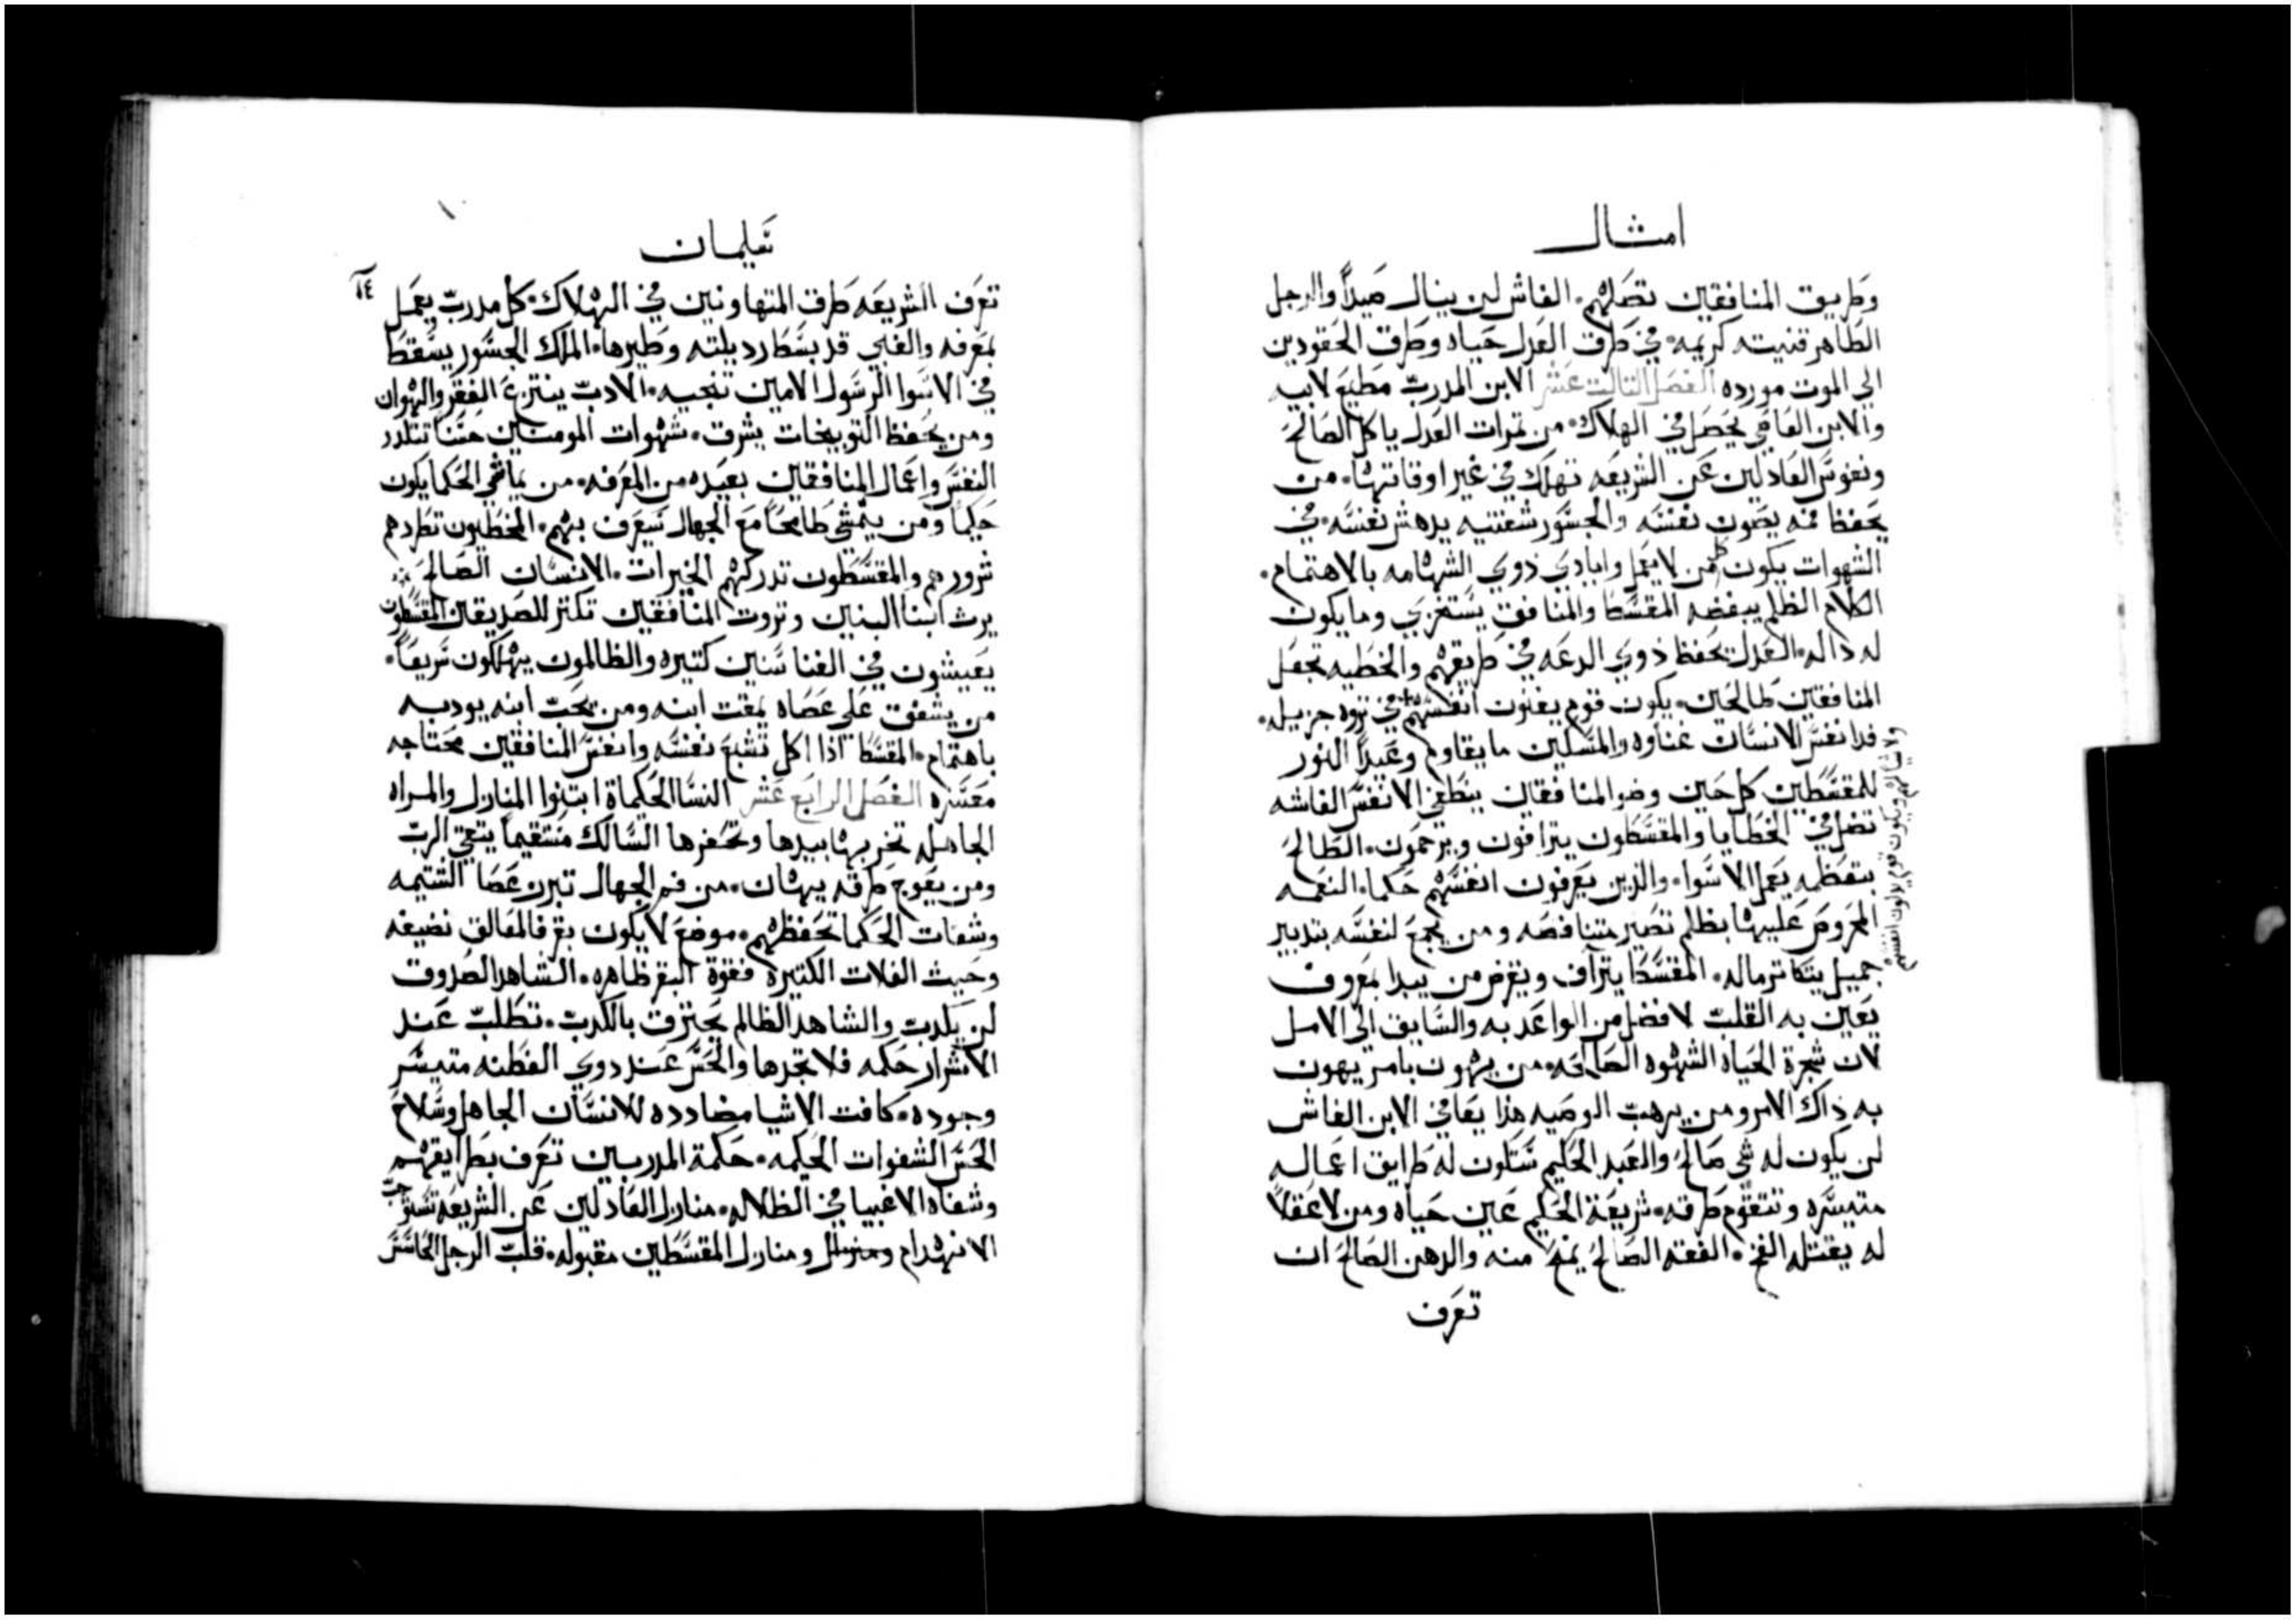 امثال
وطريق المنافقين تضلهم. الغاش لن ينال صيداً والرجل
الطاهر قنيته كريمه. في طرق العدل حياه وطرق الحقودين
الي الموت مورده الفصل التالت عشر الابن المدرب مطيع لابيه
والابن العاصي يحصل في الهلاك. من تمرات العدل ياكل الصالح
ونفوس العادلين عن الشريعه تهلك في غير اوقاتها. من
يحفظ فمه يصون نفسه والجسور شفتيه يدهش نفسه. في
الشهوات يكون كل من لا يعمل وايادي ذوي الشهامه بالاهتمام.
الكلام الظلم يبغضه المقسط والمنافق يستخزي وما يكون
له داله. العدل يحفظ ذوي الدعه في طريقهم والخطيه تجعل
المنافقين طالحين. يكون قوم يغنون انفسهم في تروه جزيله.
فدا نفس الانسان غناوه والمسكين ما يقاوم وعيداً النور
للمقسطين كل حين وضو المنافقين ينطفي الانفس الغاشه
تضل في الخطايا والمقسطون يترافون ويترحمون. الطالح
بتعظمه يعمل الاسوا. والذين يعرفون انفسهم حكما. النعمه
المحروص عليها بظلم تصير متناقصه ومن يجمع لنفسه بتدبير
جميل يتكاتر ماله. المقسط يترآف ويقرض من يبدا بمعروف
يعين به القلب لافضل من الواعد به والسايق الي الامل
لان شجرة الحياه الشهوه الصالحه. من يهون بامر يهون
به ذاك الامر ومن يرهب الوصيه هذا يعافي الابن الغاش
لن يكون له شي صالح والعبد الحكيم ستكون له طرايق اعماله
متيسره وتتقوم طرقه. شريعة الحكيم عين حياه ومن لا عقلاً
له يقتله الفخ. الفقه الصالح يمنح منه والدهن الصالح ان
تعرف
ولا شيا لهم ويكون قوم يدلون انفسهم
سليمان
١٤
تعرف الشريعه طرق المتهاونين في الهلاك. كل مدرب يعمل
بمعرفه والغبي قد بسط رديلته وطيرها. الملك الجسور يسقط
في الاسوا الرسول الامين تنجيه. الادب ينتزع الفقر والهوان
ومن يحفظ التوبيخات يشرق. شهوات المومنين حسنا تتلدد
النفس واعمال المنافقين بعيده من المعرفه. من يماشي الحكما يكون
حكيماً ومن يتمشي طامحاً مع الجهال سيعرف بهم. المخطيون تطردهم
شرورهم والمقسطون تدركهم الخيرات. الانسان الصالح
يرث ابنا البنين وتروت المنافقين تكتنز للصديقين المقسطون
يعيشون في الغنا سنين كتيره والظالمون يهلكون سريعاً.
من يشفق علي عصاه يمقت ابنه ومن يحب ابنه يودبه
باهتمام. المقسط اذا اكل تشبع نفسه وانفس المنافقين محتاجه
معسره الفصل الرابع عشر النسا الحكماة ابتنوا المنازل والمراه
الجاهله تخربها بيدها وتحفرها السالك مستقيماً يتقي الرب
ومن يعوج طرقه يهان. من فم الجهال تبرز عصا الشتيمه
وشفات الحكما تحفظهم. موضع لا يكون بقر فالمعالف نضيفه
وحيث الغلات الكتيره فقوة البقر ظاهره. الشاهد الصدوق
لن يكدب والشاهد الظالم يحترق بالكدب. تطلب عند
الاشرار حكمه فلا تجدها والحس عند دوي الفطنه متيسر
وجوده. كافت الاشيا مضادده للانسان الجاهل وسلاح
الحس الشفوات الحكيمه. حكمة المدربين تعرف بطرايقهم
وشفاه الاغبيا في الظلاله. منازل العادلين عن الشريعه تستوجب
الانهدام ومنازل المقسطين مقبوله. قلب الرجل الحاسس